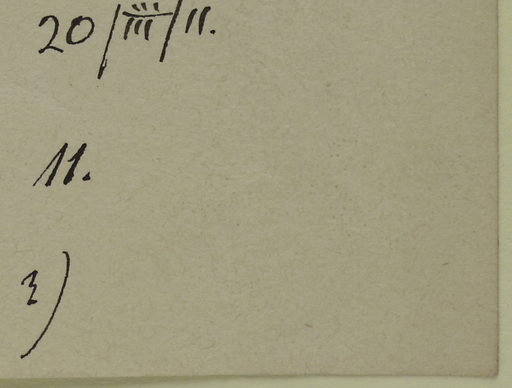 20/III/11.
11.
3)